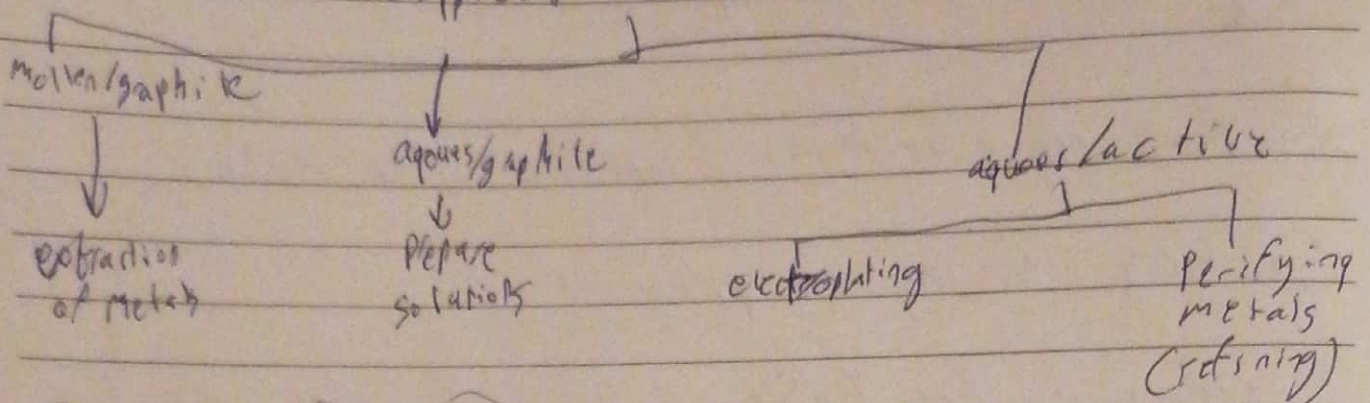 molten/graphite
aqoues/graphite
aqueos/active
extraction
of metals
Prepare
solutions
electroplating
Perifying
metals
(refining)